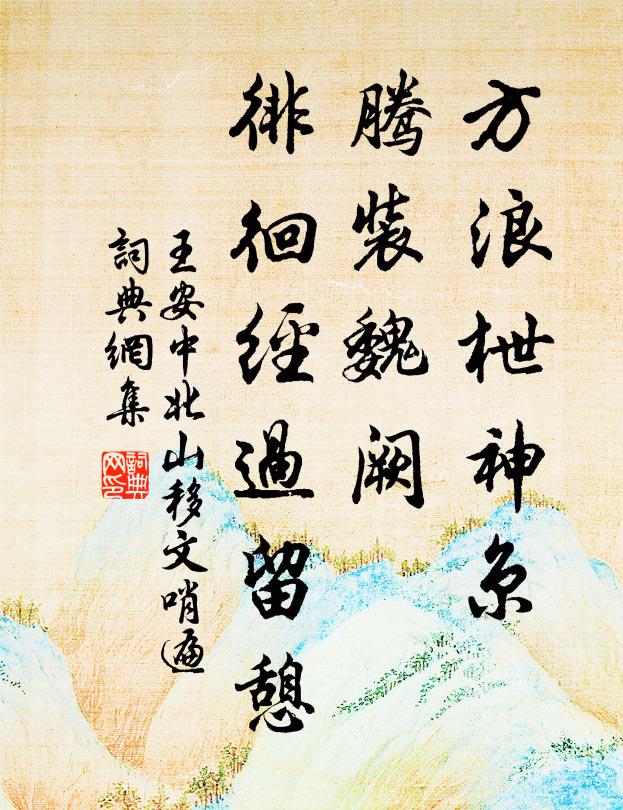 方浪枻神京
腾装魏阙
徘徊經過留憩
王安中北山移文哨遍
詞典網集
詞典网印